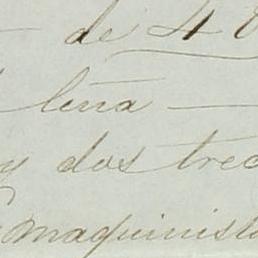 de 4
leña
y dos trec
maquinista